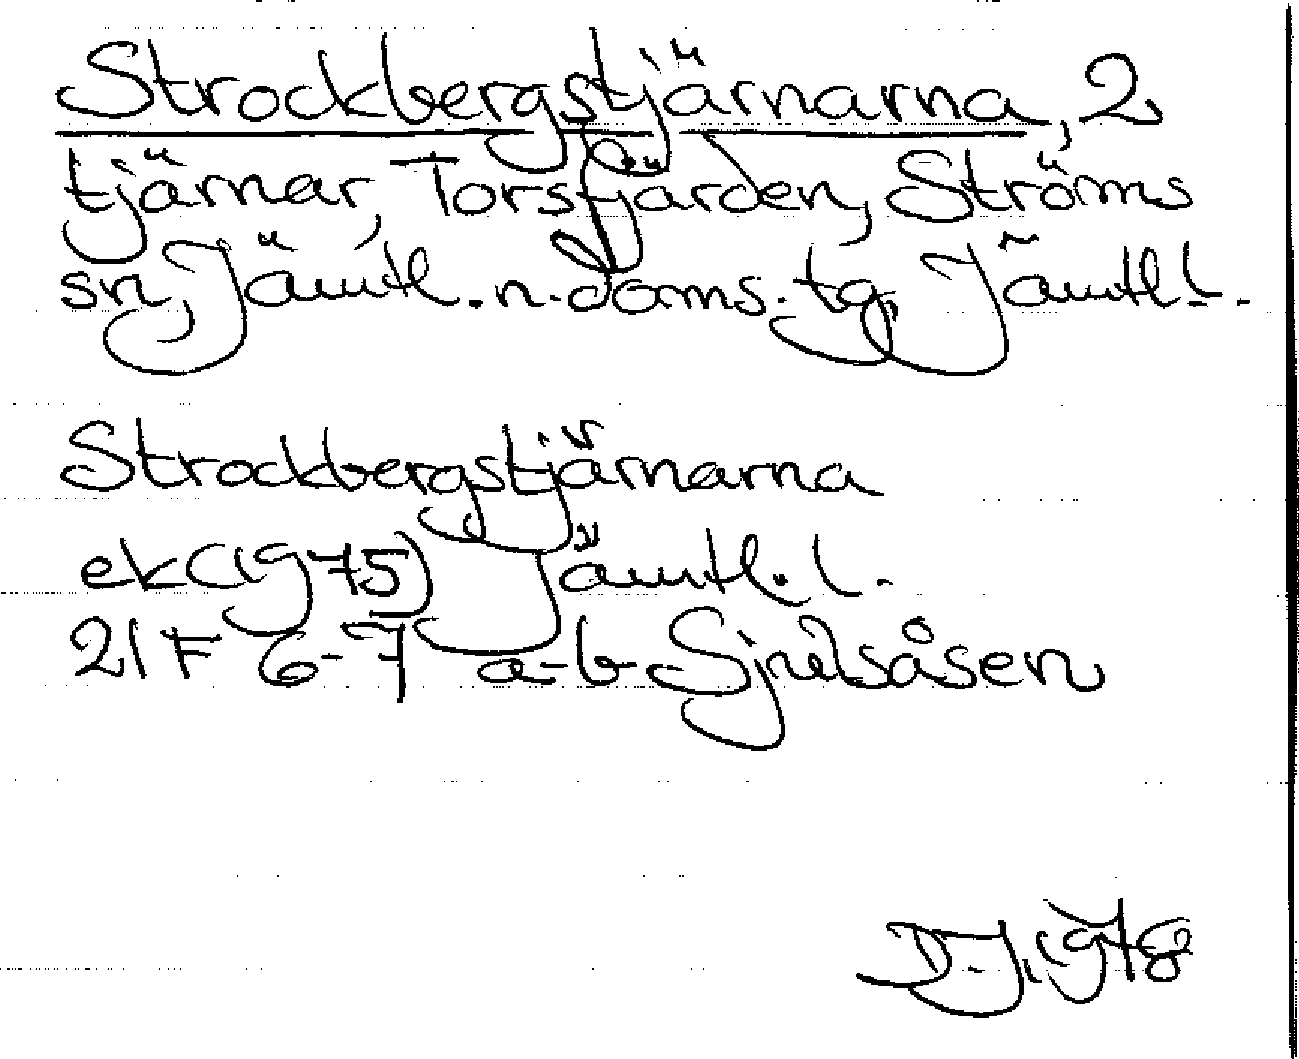 Strockbergstjärnarna, 2
tjärnar, Torsfjärden, Ströms
sn, Jämtl. n. doms. tg, Jämtl l.
Strockbergstjärnarna
ek (1975) Jämtl. l.
21F 6-7 a-b Sjulsåsen
D.J. 1978